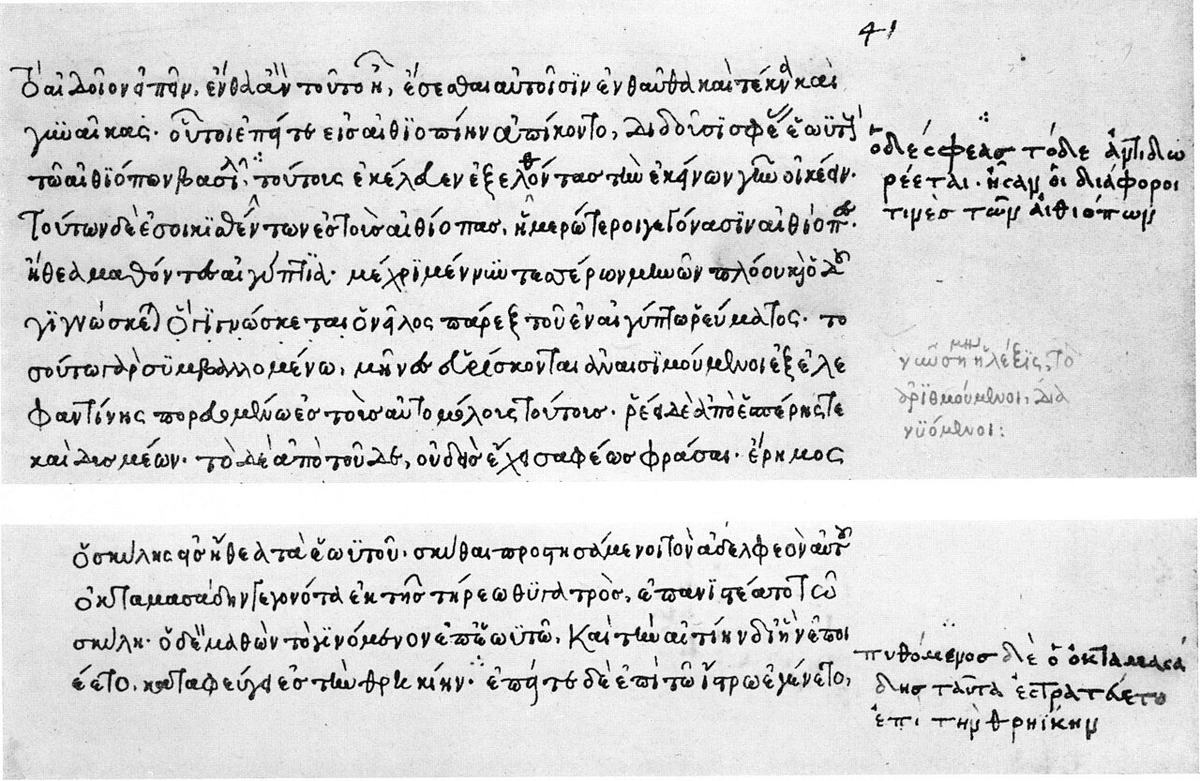 τὸ αἰδοῖον εἰπεῖν, ἔνθα ἂν τοῦτο ἦ, ἔσεσθαι αὐτοῖσιν ἐνθαῦθα καὶ τέκνα καὶ
γυναῖκας· οὗτοι ἐπείτε εἰς αἰθϊοπίην ἀπίκοντο, διδοῦσι σφέας ἑωϋτοὺς
τῶ αἰθϊόπων βασιλεῖ· τούτοις ἐκέλευεν ἐξελόντας τὴν ἐκείνων γῆν οἰκέειν·
τούτων δὲ ἐσοικισθέντων ἐς τοὺς αἰθίοπας, ἡμερώτεροι γεγόνασϊν αἰθίοπες·
ἤθεα μαθόντες αἰγύπτϊα· μέχρι μέν νυν τεσσέρων μηνῶν πλόου καὶ ὁδοῦ
γϊγνώσκεται ὁ γϊγνώσκεται ὁ νεῖλος πάρεξ τοῦ ἐν αἰγύπτω ῥεύματος· το
σούτω γὰρ συμβαλλομένω, μῆνες εὑρίσκονται ἀναισϊμούμενοι ἐξ ἐλε
φαντίνης πορευομένω ἐς τοὺς αὐτομόλους τούτους· ῥέει δὲ ἀπὸ ἑσπέρης τε
καὶ δυσμέων· τὸ δὲ ἀπὸ τοῦδε, οὐδεὶς ἔχει σαφέως φράσαι· ἔρημος
41
ὁ δὲ σφέας τόδε ἀντιδω
ρέεται· ἦσαν οἱ διάφοροι
τινὲς τῶν αἰθιόπων
γνώση ἡ λέξϊς, τὸ
ἀρϊθμούμενοι, δια
νϋόμενοι:
ὁ σκύλης ἐς ἤθεα τὰ ἑωϋτοῦ· σκύθαι προστησάμενοι τὸν ἀδελφεὸν αὐτοῦ
ὀκταμασάδην γεγονότα ἐκ τῆς τήρεω θϋγατρὸς, ἐπανϊστέατο τῶ
σκύλη· ὁ δὲ μαθὼν τὸ γϊνόμενον ἐπ' ἑωϋτῶ, καὶ τὴν αἰτίην δι' ἣν ἐποι
έετο, καταφεύγει ἐς τὴν θρηκίην· ἐπείτε δὲ ἐπὶ τῶ ἴστρω ἐγένετο,
πυθόμενος δὲ ὁ ὀκταμασά
δης ταῦτα ἐστρατεύετο
ἐπὶ τὴν θρηίκην